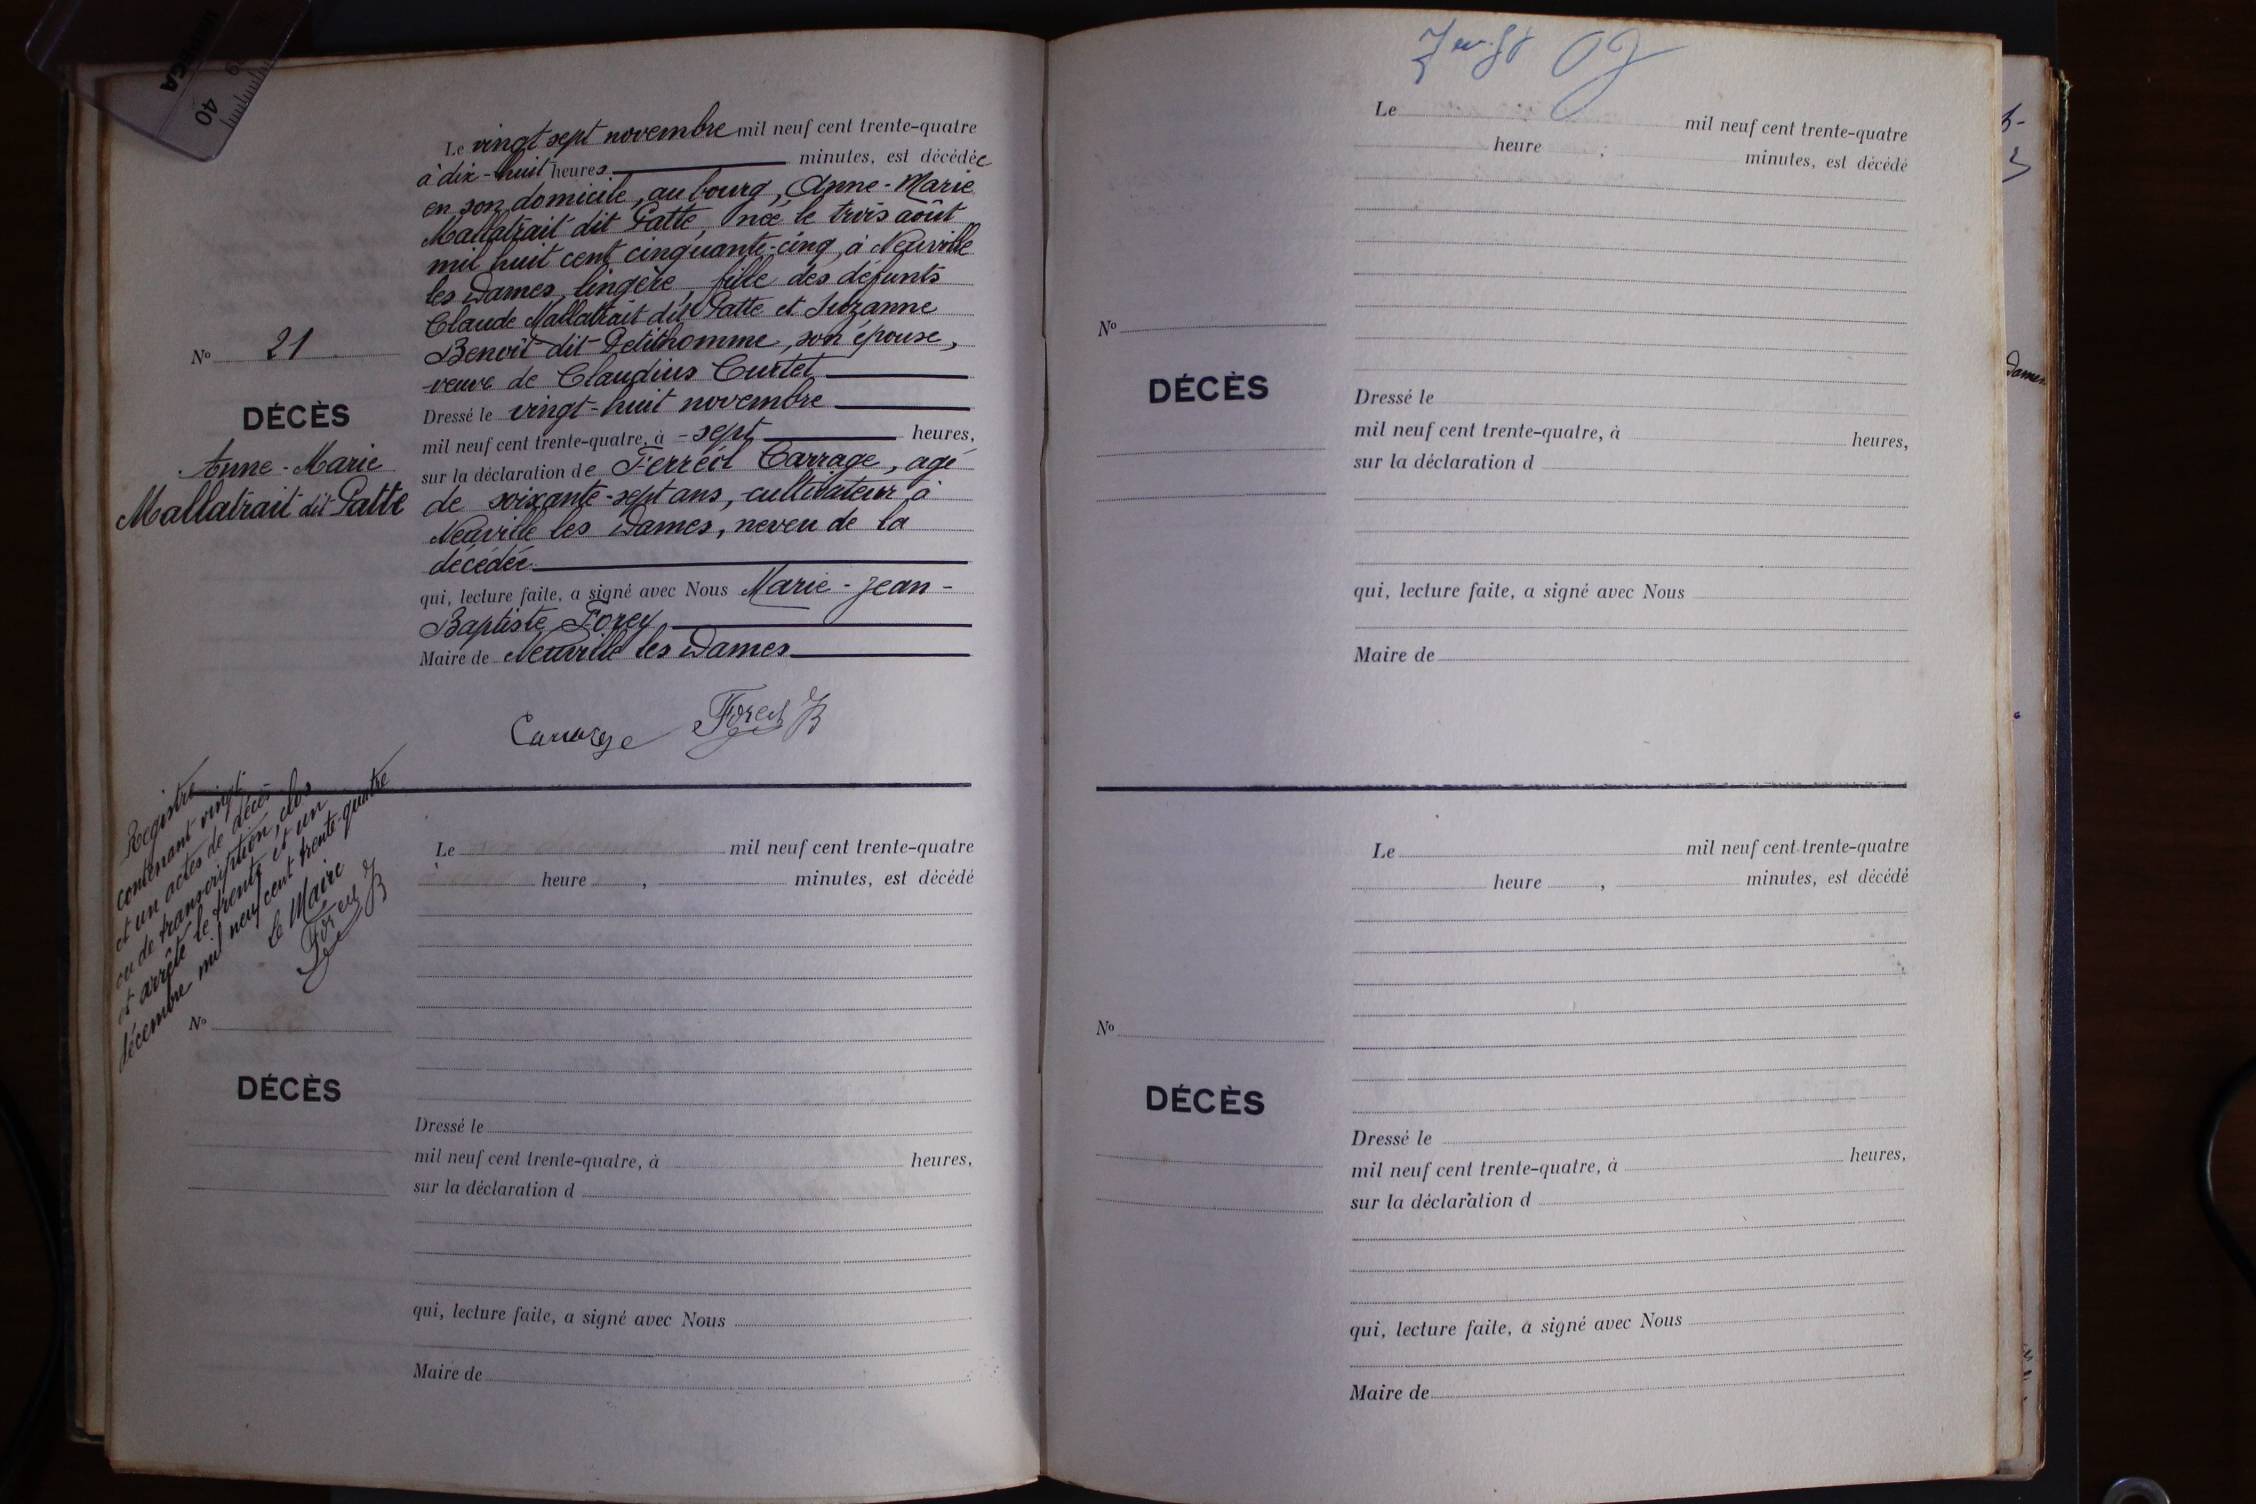 Le vingt sept novembre mil neuf cent trente-quatre
à dix-huit heures minutes, est décédée
en son domicile, au bourg, Anne-Marie
Mallatrait dit Patte, née le trois août
mil huit cent cinquante-cinq, à Neuville
les Dames, lingère, fille des défunts
Claude Mallatrait dit Patte et Suzanne
Benoît dit Petithomme, son épouse,
veuve de Claudius Curtet
Dressé le vingt-huit novembre
mil neuf cent trente-quatre, à -sept heures,
sur la déclaration de Ferréol Carrage, agé
de soixante-sept ans, cultivateur à
Neuville les Dames, neveu de la
décédée
qui, lecture faite, a signé avec Nous Marie-Jean-
Baptiste Forey
Maire de Neuville les Dames
Carrage Forey JB
No 21
DÉCÈS
Anne-Marie
Mallatrait dit Patte
Registre
contenant vingt
et un actes de décès
ou de transcription, clos
et arrêté le trente et un
décembre mil neuf cent trente-quatre
Le Maire
Forey JB
Le mil neuf cent trente-quatre
heure , minutes, est décédé
No
DÉCÈS
Dressé le
mil neuf cent trente-quatre, à heures,
sur la déclaration d
qui, lecture faite, a signé avec Nous
Maire de
Le mil neuf cent trente-quatre
heure , minutes, est décédé
No
DÉCÈS
Dressé le
mil neuf cent trente-quatre, à heures,
sur la déclaration d
qui, lecture faite, a signé avec Nous
Maire de
Le mil neuf cent trente-quatre
heure , minutes, est décédé
No
DÉCÈS
Dressé le
mil neuf cent trente-quatre, à heures,
sur la déclaration d
qui, lecture faite, a signé avec Nous
Maire de
Dames
40